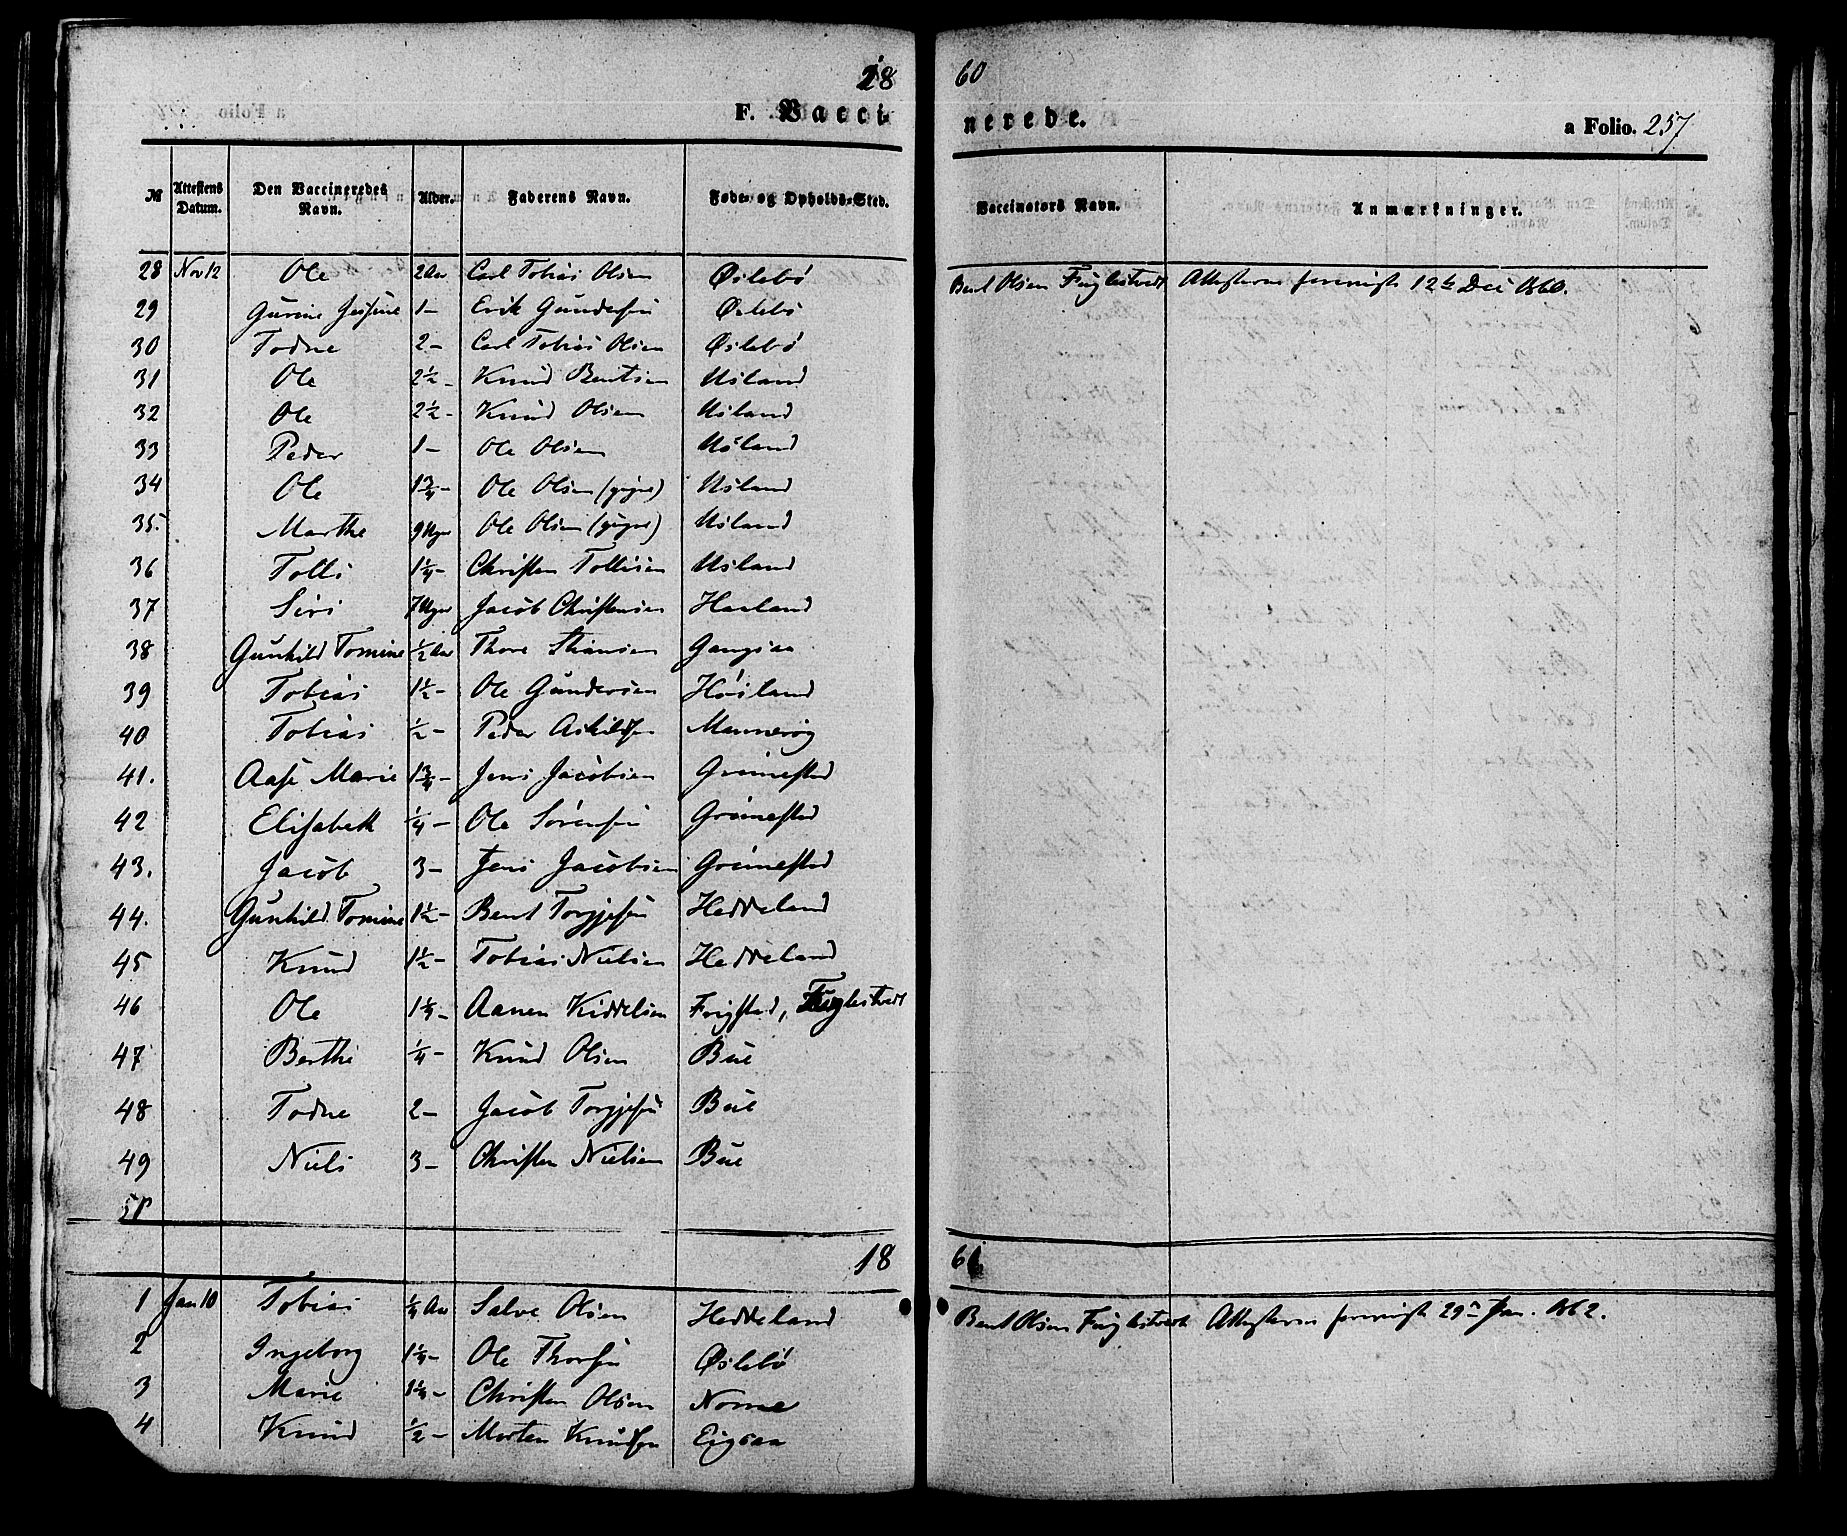 18 60
F. Vaccinerede. a Folio. 257
№ Attestens Datum. Den Vaccineredes Navn. Alder. Faderens Navn. Føde- og Opholds-Sted. Vaccinators Navn. Anmærkninger.
28 Nov 12 Ole 2 Aar Carl Tobias Olsen Øslebø Bent Olsen Fuglestvedt Attesterne forevist 12te Dec 1860.
29 Gurine Josfine 1 - Erik Gundersen Øslebø
30 Todne 2 - Carl Tobias Olsen Øslebø
31 Ole 2½ - Knud Bentsen Usland
32 Ole 2½ - Knud Olsen Usland
33 Peder 1 - Ole Olsen Usland
34 Ole 1¾ - Ole Olsen Usland
35. Marthe 9 Uger Ole Olsen Usland
36 Tolli 1¼ - Christen Tollisen Usland
37 Siri 7 Uger Jacob Christensen Haaland
38 Gunhild Tomine ½ Aar Thore Stiansen Gangsaa
39 Tobias 1½ - Ole Gundersen Høiland
40 Tobias ½ - Peder Askildsen Mannerøg
41. Aase Marie 1¾ - Jens Jacobsen Greimestad
42 Elisabeth ¼ - Ole Sørensen Greimestad
43. Jacob 3 - Jens Jacobsen Greimestad
44. Gunhild Tomine 1½ - Bent Torgjesen Heddeland
45 Knud 1½ - Tobias Nielsen Heddeland
46 Ole 1¼ - Aanen Kiddelsen Frigstad, Fuglestvedt
47 Berthe ¼ - Knud Olsen Bue
48 Todne 2 - Jacob Torgjesen Bue
49 Niels 3 - Christen Nielsen Bue
18 61
1 Jan 10 Tobias ¼ Aar Salve Olsen Heddeland Bent Olsen Fuglestvedt Attesterne forevist 29de Jan. 1862.
2 Ingeborg 1¼ - Ole Thorsen Øslebø
3 Marie 1¼ - Christen Olsen Nome
4 Knud ½ - Morten Knudsen Eigsaa